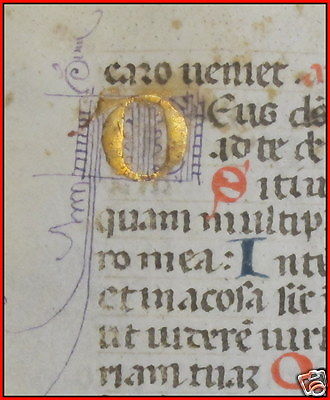 caro ueniet.
DEus ds̄
ad te de
Sitiui
quam multip
ro mea: Inte
et inacosa sic̄
ut uiderē uir
riam tuaz